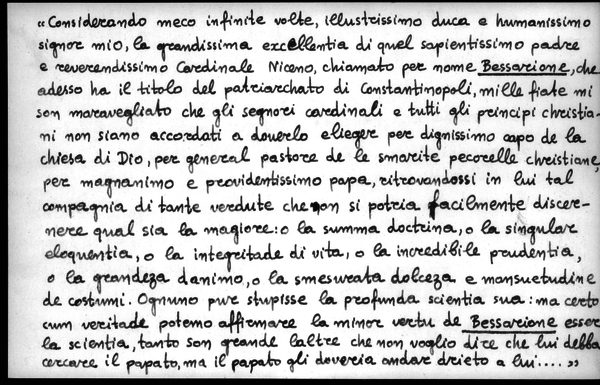 “Considerando meco infinite volte, illustrissimo duca e humanissimo
signor mio, la grandissima excellentia di quel sapientissimo padre
e reverendissimo Cardinale Niceno, chiamato per nome Bessarione, che
adesso ha il titolo del patriarchato di Constantinopoli, mille fiate mi
son maravegliato che gli segnori cardinali e tutti gli principi christia-
ni non siano accordati a doverlo elieger per dignissimo capo de la
chiesa di Dio, per general pastore de le smarite pecorelle christiane,
per magnanimo e providentissimo papa, ritrovandossi in lui tal
compagnia di tante verdute che non si potria facilmente discer-
nere qual sia la magiore: o la summa doctrina, o la singular
eloquentia, o la integritade di vita, o la incredibile prudentia,
o la grandeza danimo, o la smesurata dolceza e mansuetudine
de costumi. Ognuno pur stupisse la profunda scientia sua: ma certo
cum veritade potemo affirmare la minor vertu de Bessarione esser
la scientia, tanto son grande laltre che non voglio dire che lui debba
cercare il papato, ma il papato gli doveria andar drieto a lui....”